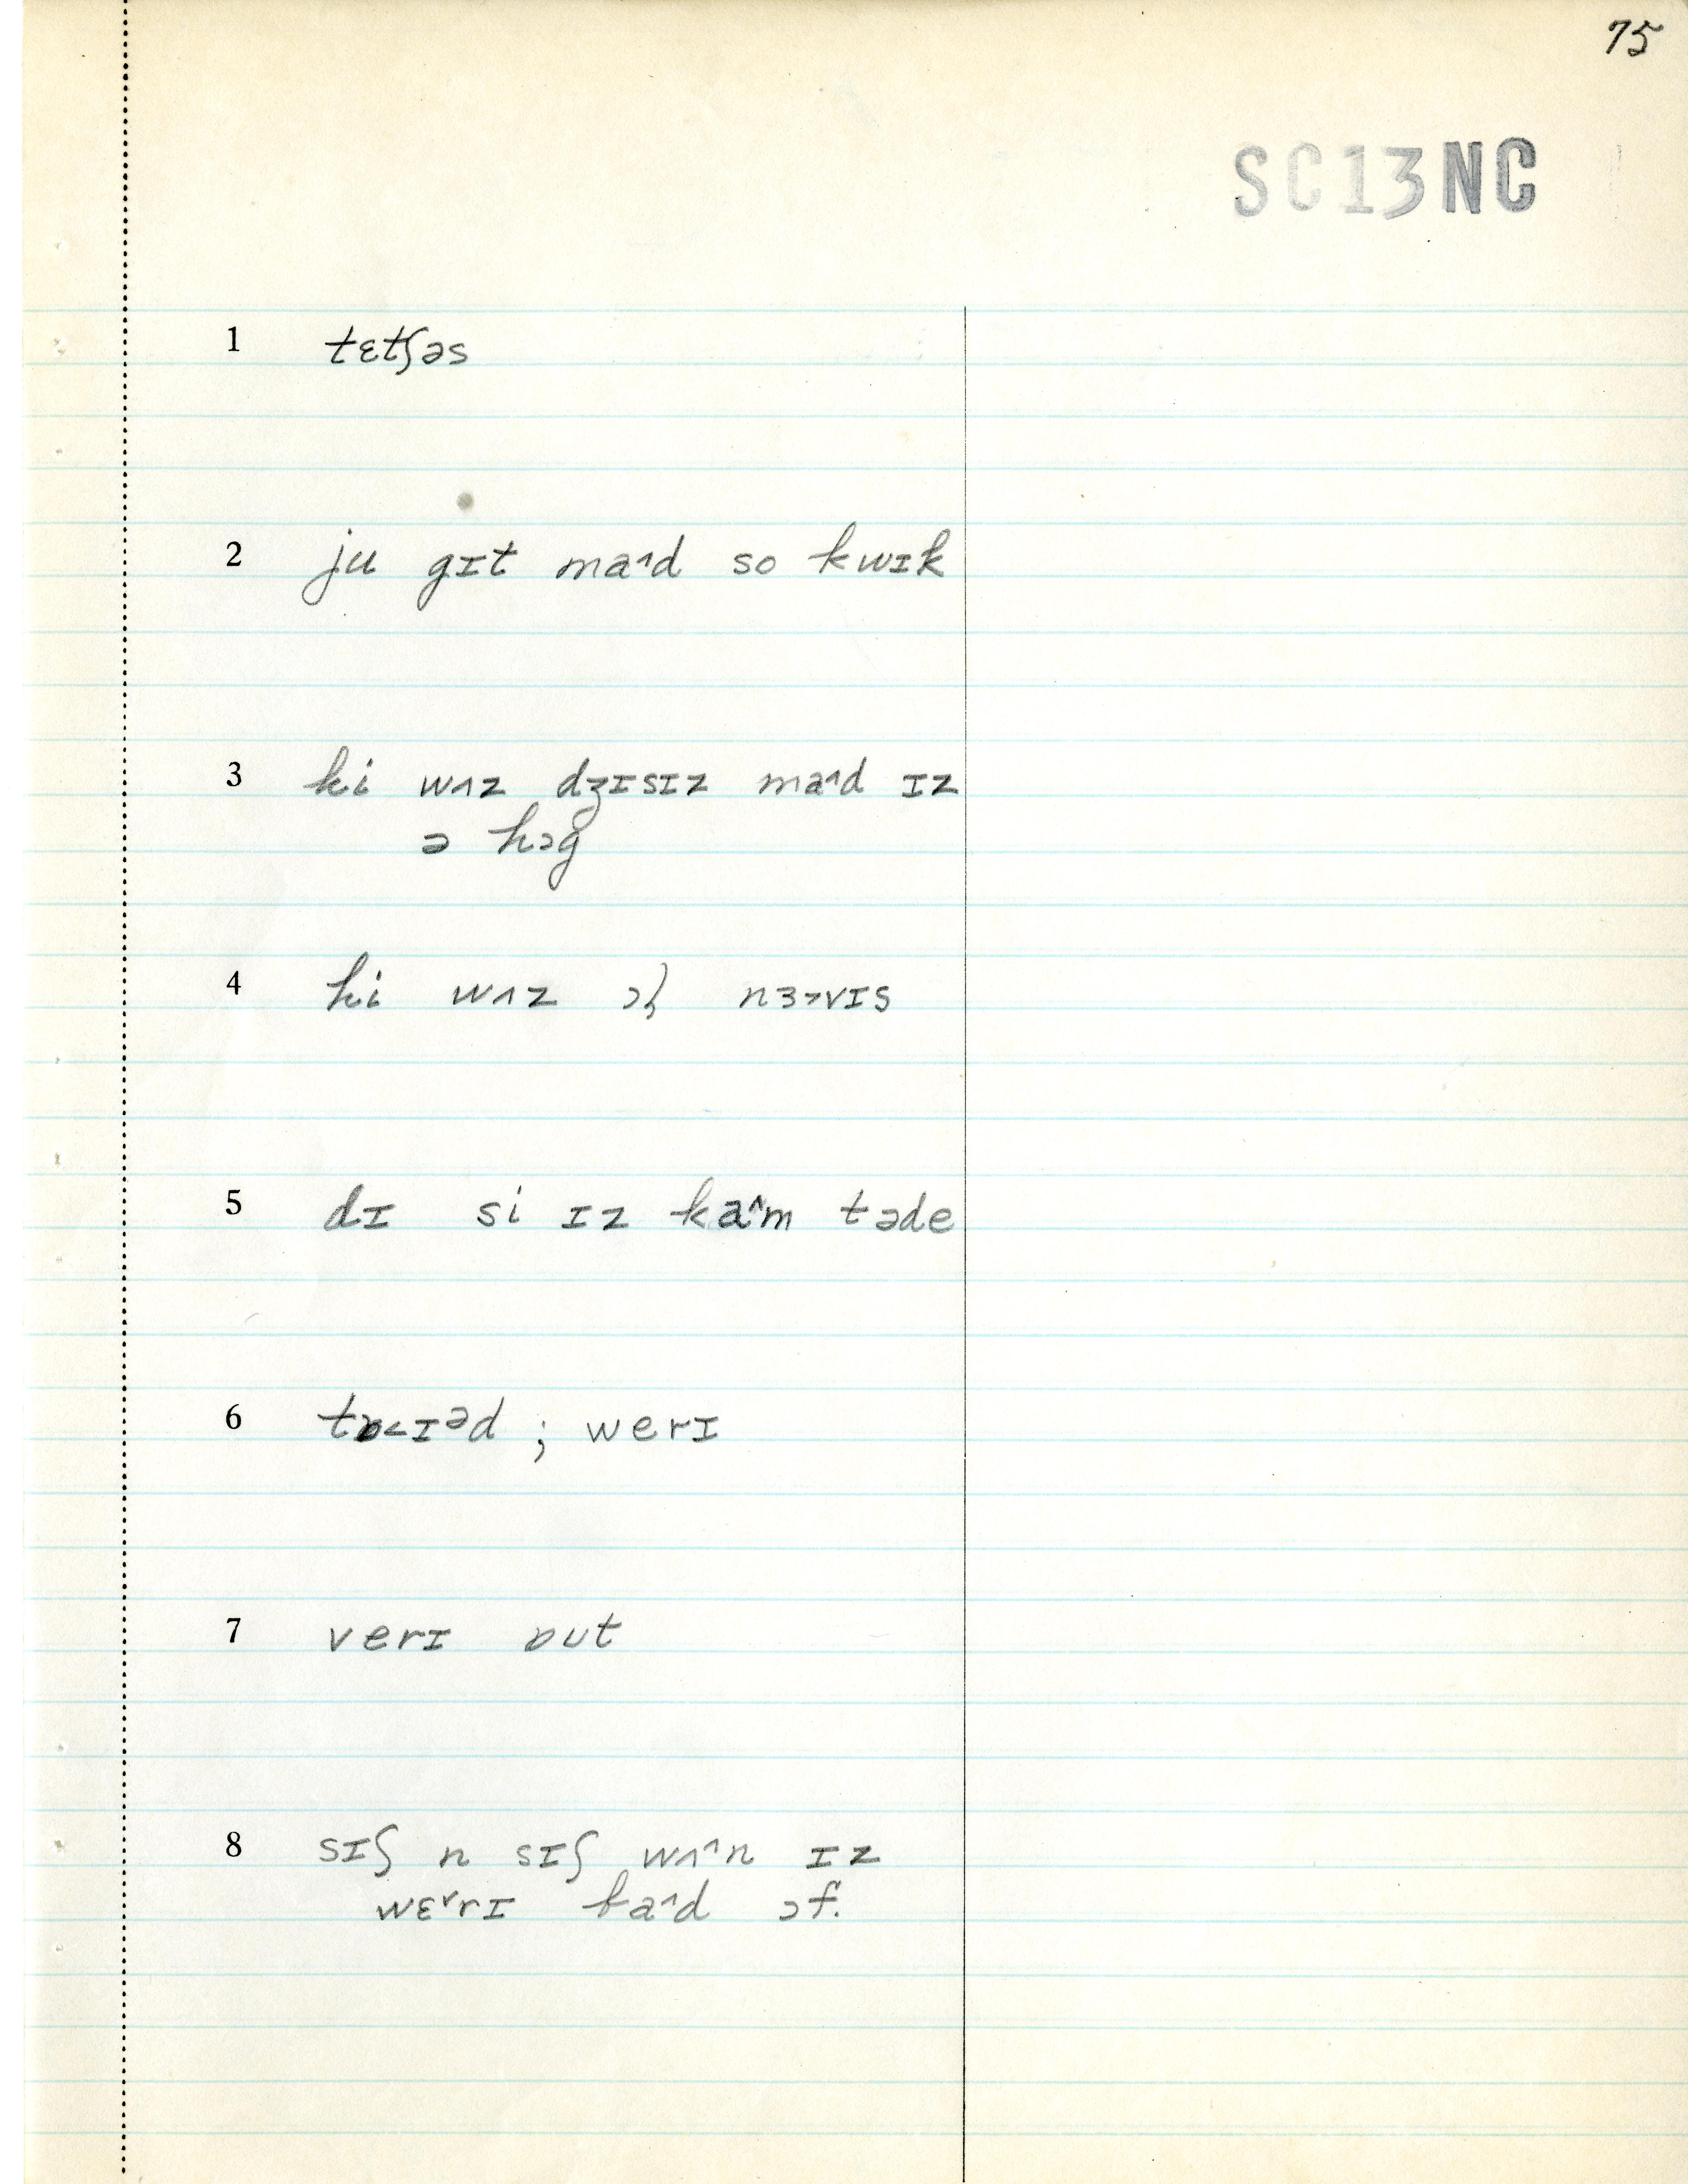 75
SC13NC
1 tɛtʃəs
2 ju gɪt ma˄d so kwɪk
3 hi wʌz dʒɪsɪz ma˄d ɪz
ə hɔg
4 hi wʌz nɜ˃vɪs
5 dɪ si ɪz ka˄m təde
6 tɒ˂ɪəd ; werɪ
7 verɪ ɒut
8 sɪʃ n sɪʃ wʌ˄n ɪz
wɛ˅rɪ ha˄d ɔf.